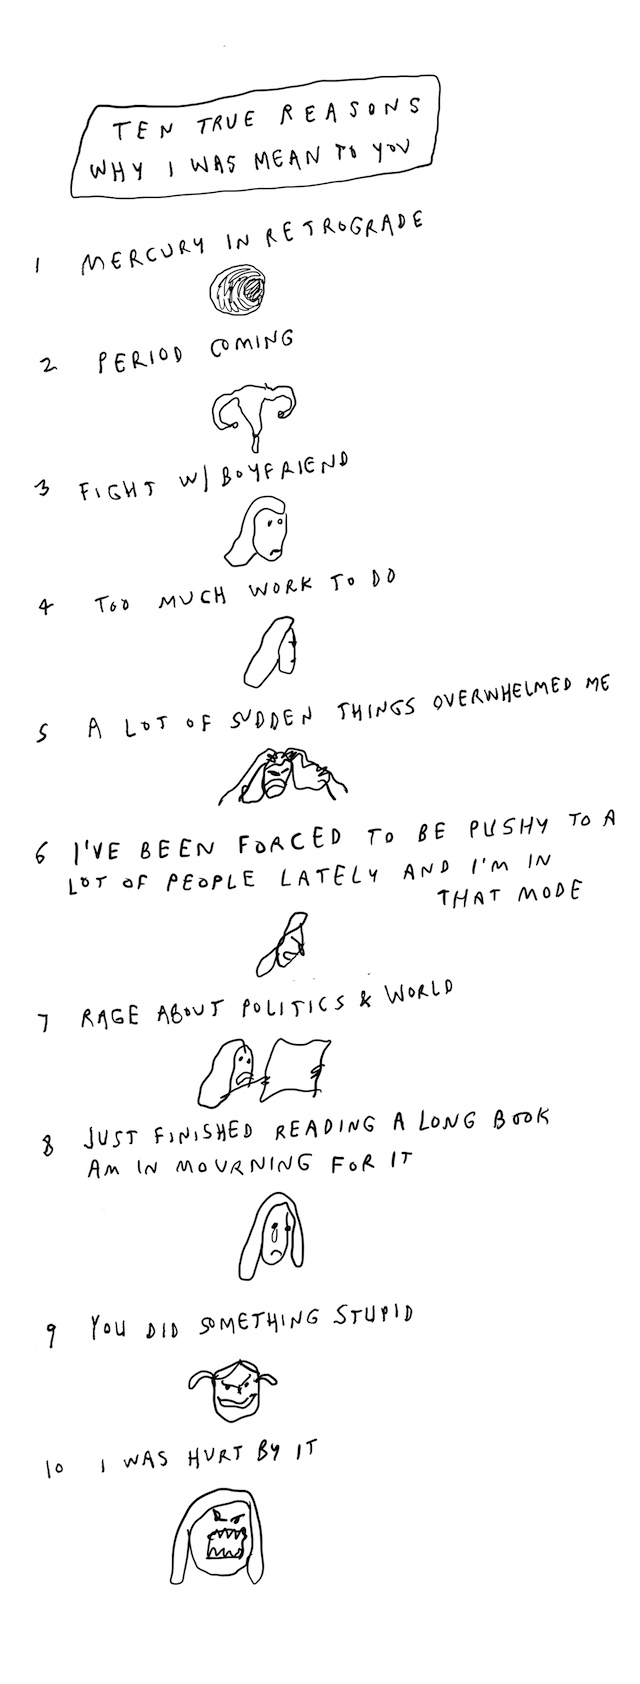 TEN TRUE REASONS
WHY I WAS MEAN TO YOU
1 MERCURY IN RETROGRADE
2 PERIOD COMING
3 FIGHT W/ BOYFRIEND
4 TOO MUCH WORK TO DO
5 A LOT OF SUDDEN THINGS OVERWHELMED ME
6 I'VE BEEN FORCED TO BE PUSHY TO A
LOT OF PEOPLE LATELY AND I'M IN
THAT MODE
7 RAGE ABOUT POLITICS & WORLD
8 JUST FINISHED READING A LONG BOOK
AM IN MOURNING FOR IT
9 YOU DID SOMETHING STUPID
10 I WAS HURT BY IT